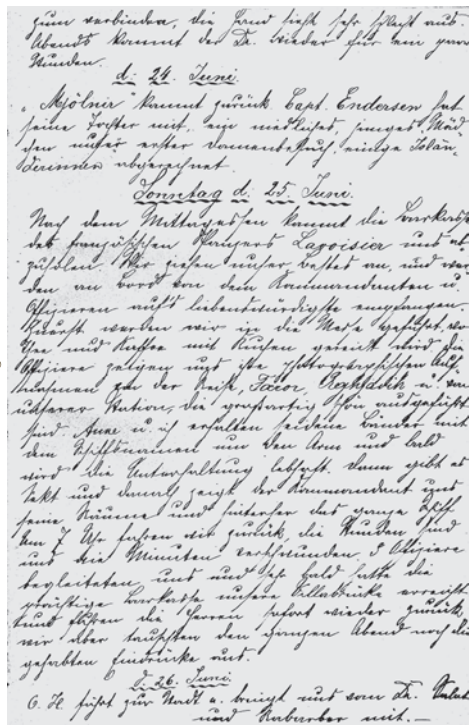 zum verbinden, die Hand sieht sehr schlecht aus.
Abends kommt der Dr. wieder für ein paar
Stunden.
d. 24. Juni.
"Mjölnir" kommt zurück. Capt. Endersen hat
seine Tochter mit, ein niedliches, junges Mäd-
chen unser erster Damenbesuch, einige Islän-
derinnen abgerechnet.
Sonntag d. 25. Juni.
Nach dem Mittagessen kommt die Barkasse
des französischen Panzers Lavoisier uns ab-
zuholen. Wir ziehen unser Bestes an, und wer-
den an Bord von dem Kommandanten u.
Offizieren aufs liebenswürdigste empfangen.
Zuerst werden wir in die Messe geführt, wo
Thee und Kaffee mit Kuchen gereicht wird, die
Offiziere zeigen uns ihre photographischen Auf-
nahmen von der Reise, u. von
unserer Station, die großartig schön ausgeführt
sind. Anna u. ich erhalten seidene Bänder mit
dem Schiffsnamen um den Arm und bald
wird die Unterhaltung lebhaft. Dann gibt es
Sekt und danach zeigt der Kommandant uns
seine Räume und hinterher das ganze Schiff.
Um 7 Uhr fahren wir zurück, die Stunden sind
uns wie Minuten verschwunden. 5 Offiziere
begleiteten uns und sehr bald hatte die
prächtige Barkasse unsere erreicht
und fuhren die Herren sofort wieder zurück,
wir aber tauschten den ganzen Abend noch die
gehabten Eindrücke aus.
d. 26. Juni.
C. H. fährt zur Stadt u. bringt uns vom Dr. Salat
und Rabarber mit.—